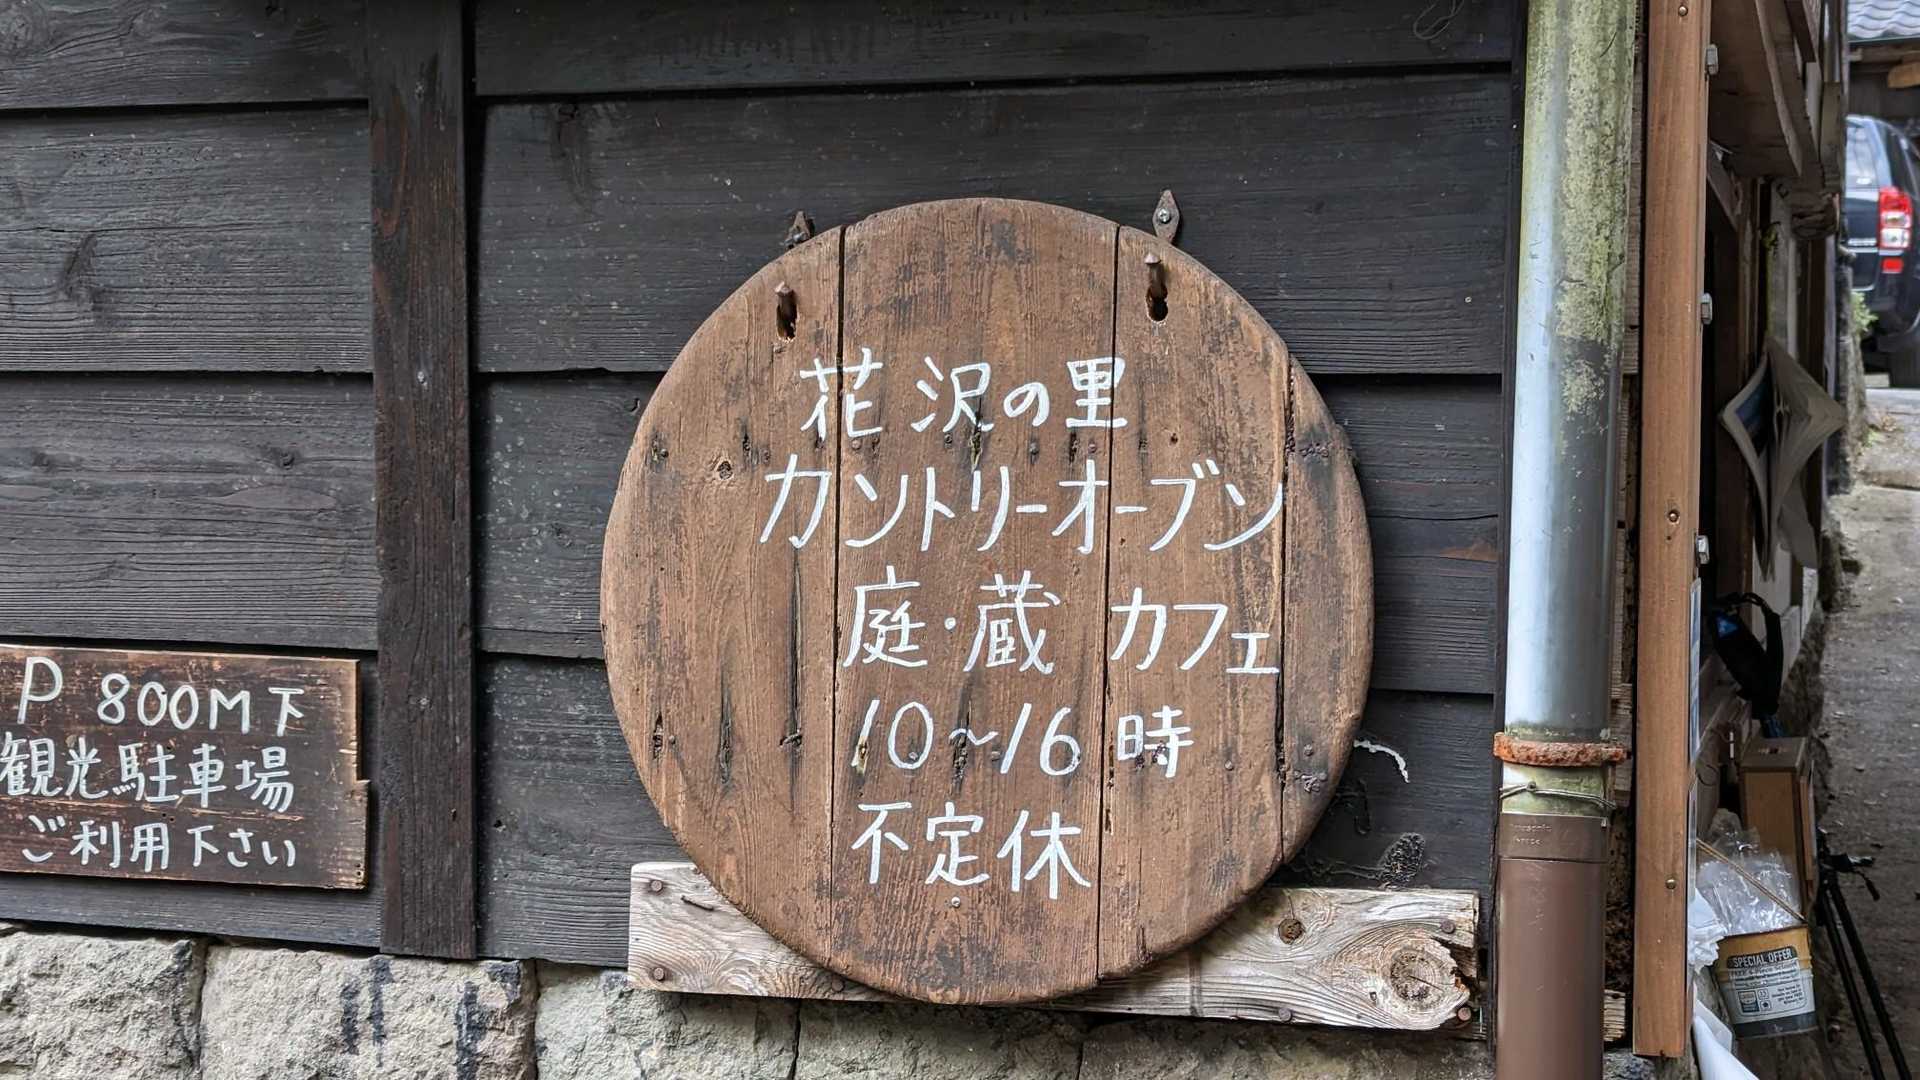 花沢の里
カントリーオーブン
庭・蔵 カフェ
10〜16時
不定休
P 800M下
観光駐車場
ご利用下さい
SPECIAL OFFER